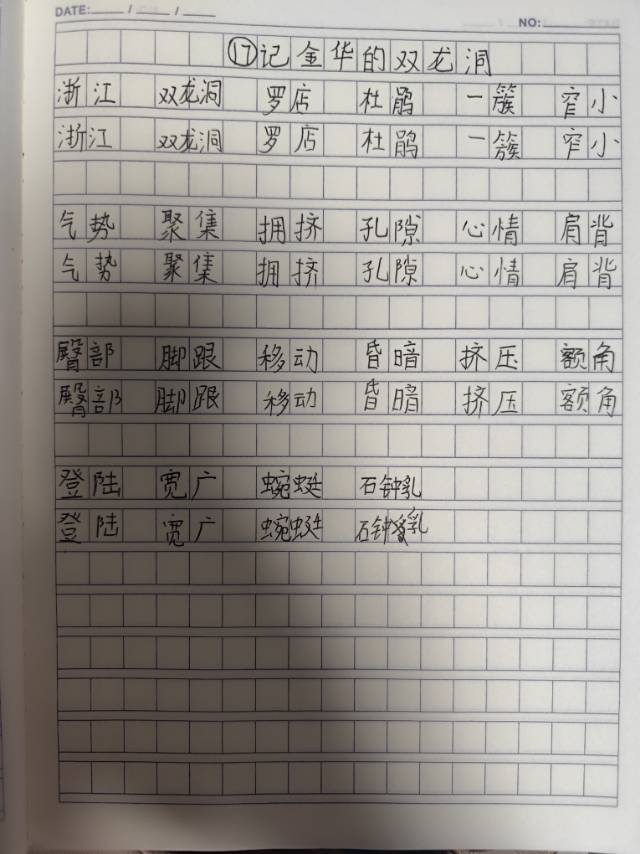 DATE: / /
NO:
⑰记金华的双龙洞
浙江 双龙洞 罗店 杜鹃 一簇 窄小
浙江 双龙洞 罗店 杜鹃 一簇 窄小
气势 聚集 拥挤 孔隙 心情 肩背
气势 聚集 拥挤 孔隙 心情 肩背
臀部 脚跟 移动 昏暗 挤压 额角
臀部 脚跟 移动 昏暗 挤压 额角
登陆 宽广 蜿蜒 石钟乳
登陆 宽广 蜿蜒 石钟乳